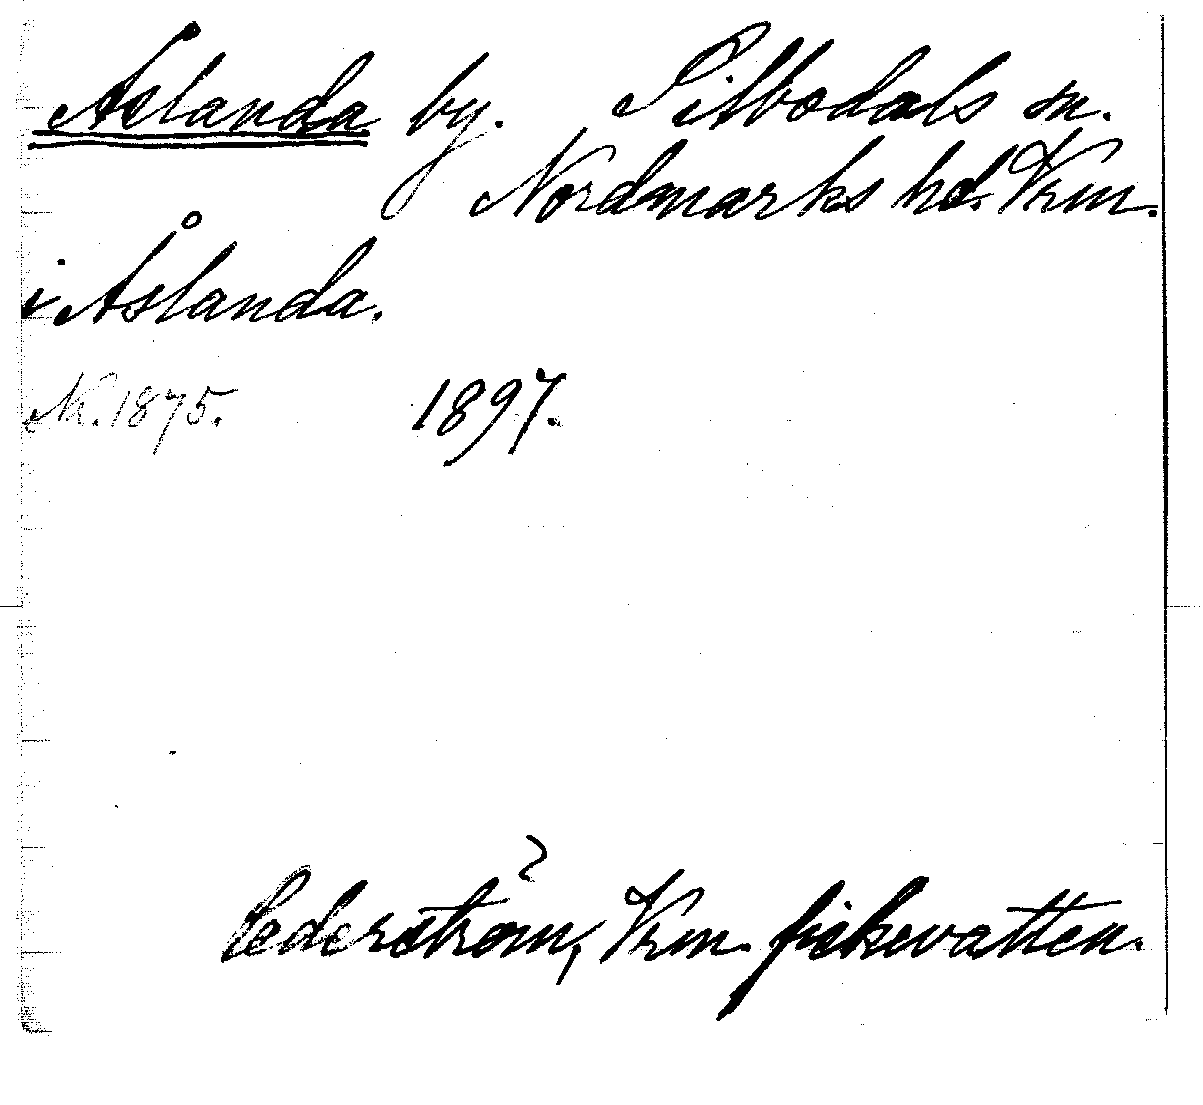 Åslanda by. Silbodals sn.
Nordmarks hd. Vrm.
i Åslanda.
1875. 1897.
Cederström, Vrm. fiskevatten.